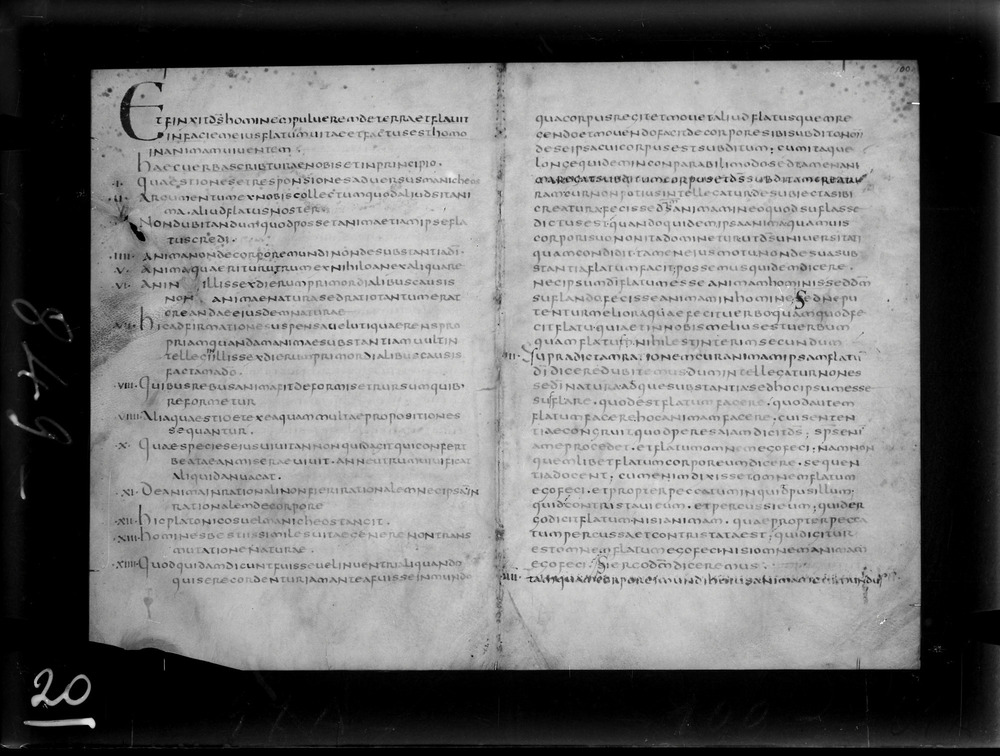 ET FINXIT DS HOMINEM PULUEREM DE TERRA ET FLAUIT
IN FACIEM EIUS FLATUM UITAE ET FACTUS EST HOMO
IN ANIMAM UIUENTEM.
HAEC UERBA SCRIBTURAE NOBIS ET IN PRINCIPIO.
.I. QUAESTIONES ET RESPONSIONES ADUERSUS MANICHEOS
.II. ARGUMENTUM EX NOBIS COLLECTUM QUOD ALIUD SIT ANI
MA. ALIUD FLATUS NOSTER.
NON DUBITANDUM QUOD POSSET ANIMA ETIAM IPSE FLA
TUS CREDI.
.IIII. ANIMA NON DE CORPORE MUNDI NON DE SUBSTANTIA DI.
.V. ANIMA QUAERITUR UTRUM EX NIHILO AN EX ALIQUA RE.
.VI. AN IN ILLIS SEX DIERUM PRIMORDIALIBUS CAUSIS
NON ANIMAE NATURA SED RATIO TANTUM ERAT
CREANDAE EIUSDEM NATURAE
.VII. HIC ADFIRMATIONE SUSPENSA UELUTI QUAERENS PRO
PRIAM QUANDAM ANIMAE SUBSTANTIAM UULT IN
TELLEGI IN ILLIS SEX DIERUM PRIMORDIALIBUS CAUSIS
FACTAM A DO.
.VIII. QUIBUS REBUS ANIMA FIT DEFORMIS ET RURSUM QUIBUS
REFORMETUR
.VIIII. ALIA QUAESTIO ET EX EA QUAM MULTAE PROPOSITIONES
SEQUANTUR.
.X. QUAE SPECIES EIUS UIUIT AN NON QUID AGIT QUI CONFERT
BEATA E AN MISERA E UIUIT. AN NEUTRUM UIUIFICAT
ALIQUID AN UACAT.
.XI. DE ANIMA INRATIONALI NON FIERI RATIONALEM NEC IPSAM IN
RATIONALEM DE CORPORE
.XII. HIC PLATONICOS UEL MANICHEOS TANGIT.
.XIII. HOMINES BESTIIS SIMILES UITAE GENERE NON TRANS
MUTATIONE NATURAE.
.XIIII. QUOD QUIDAM DICUNT FUISSE UEL INUENTRI ALIQUANDO
QUI SE RECORDENTUR IAM ANTEA FUISSE IN MUNDO
QUA CORPUS REGITET MOUET ALIUD FLATUS QUEM RE
GENDO ET MOUENDO FACIT DE CORPORE SIBI SUBDITO NON
DE SE IPSA CUI CORPUS EST SUBDITUM; CUM ITAQUE
LONGE QUIDEM INCONPARABILI MODO SED TAMEN ANI
MA REGAT SUBDITUM CORPUS ET DS SUBDITAM CREATU
RAM UR NON POTIUS INTELLEGATUR DE SUBIECTA SIBI
CREATURA FECISSE DS ANIMAM IN EO QUOD SUFLASSE
DICTUS EST QUANDOQUIDEM IPSA ANIMA QUAMUIS
CORPORI SUO NON ITA DOMINETUR UT DS UNIUERSITATI
QUAM CONDIDIT. TAMEN EIUS MOTU NON DE SUA SUB
STANTIA FLATUM FACIT; POSSEMUS QUIDEM DICERE.
NEC IPSUM DI FLATUM ESSE ANIMAM HOMINIS SED DM
SUFLANDO FECISSE ANIMAM IN HOMINE; SED NE PU
TENTUR MELIORA QUAE FECIT UERBO QUAM QUOD FE
CIT FLATU QUIA ET IN NOBIS MELIUS EST UERBUM
QUAM FLATUS; NIHIL EST INTERIM SECUNDUM
.III. SUPRADICTAM RATIONEM CUR ANIMAM IPSAM FLATU
DI DICERE DUBITEMUS DUM INTELLEGATUR NON ES
SE DI NATURA ADQUE SUBSTANTIA SED HOC IPSUM ESSE
SUFLARE. QUOD EST FLATUM FACERE. QUOD AUTEM
FLATUM FACERE HOC ANIMAM FACERE. CUI SENTEN
TIAE CONGRUIT QUOD PER ESAIAM DICIT DS; SPS ENI
A ME PROCEDET. ET FLATUM OMNEM EGO FECI; NAM NON
QUEMLIBET FLATUM CORPOREUM DICERE. SEQUEN
TIA DOCENT; CUM ENIM DIXISSET OMNEM FLATUM
EGO FECI. ET PROPTER PECCATUM INQUID PUSILLUM;
QUID CONTRISTAUI EUM. ET PERCUSSI EUM; QUID ER
GO DICIT FLATUM NISI ANIMAM. QUAE PROPTER PECCA
TUM PERCUSSA ET CONTRISTATA EST; QUID IGITUR
EST OMNEM FLATUM EGO FECI NISI OMNEM ANIMAM
EGO FECI; SI ERGO DM DICEREMUS.
.IIII. TAMQUAM CORPOREI MUNDI HUIUS ANIMAM
849 - 6
120